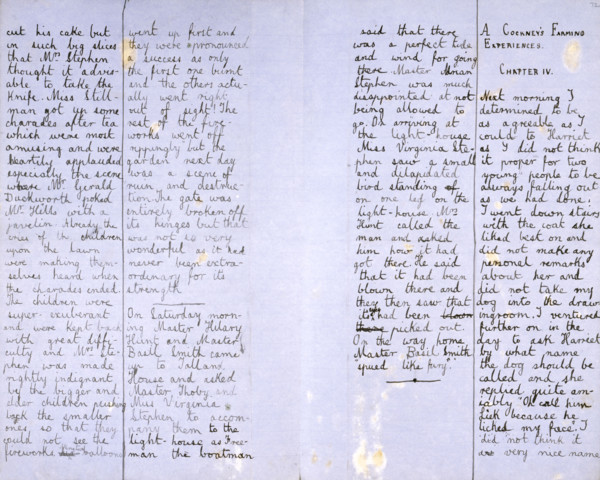 cut his cake but
in such big slices
that Mrs Stephen
thought it advis-
able to take the
knife. Miss Still-
man got up some
charades after tea
which were most
amusing and were
heartily applauded
especially the scene
where Mr Gerald
Duckworth poked
Mr Hills with a
javelin. Already the
cries of the children
upon the lawn
were making them-
selves heard when
the charades ended.
The children were
super-exuberant
and were kept back
with great diffi-
culty and Mrs Ste-
phen was made
rightly indignant
by the bigger and
older children pushing
back the smaller
ones so that they
could not see the
fireworks balloons
went up first and
they were pronounced
a success as only
the first one burnt
and the others actu-
ally went right
out of sight! The
rest of the fire-
works went off
rippingly but the
garden next day
was a scene of
ruin and destruc-
tion. The gate was
entirely broken off
its hinges but that
was not so very
wonderful as it has
never been extra-
ordinary for its
strength
On Saturday morn-
ing Master Hilary
Hunt and Master
Basil Smith came
up to Talland
House and asked
Master Thoby and
Miss Virginia
Stephen to accom-
pany them to the
light-house as Free-
man the boatman
said that there
was a perfect tide
and wind for going
there. Master Adrian
Stephen was much
disappointed at not
being allowed to
go. On arriving at
the light-house
Miss Virginia Ste-
phen saw a small
and dilapidated
bird standing
on one leg on the
light-house. Mrs
Hunt called the
man and asked
him how it had
got there. He said
that it had been
blown there and
they then saw that
it's had been
picked out.
On the way home
Master Basil Smith
"spued like fury".
72.
A COCKNEY'S FARMING
EXPERIENCES.
CHAPTER IV.
Next morning I
determined to be
as agreeable as I
could to Harriet
as I did not think
it proper for two
young people to be
always falling out
as we had done.
I went down stairs
with the coat she
liked best on and
did not make any
personal remarks
about her and
did not take my
dog into the draw-
ingroom. I ventured
further on in the
day to ask Harriet
by what name
the dog should be
called and she
replied quite am-
iably "Oh call him
Lick because he
licked my face". I
did not think it
a very nice name